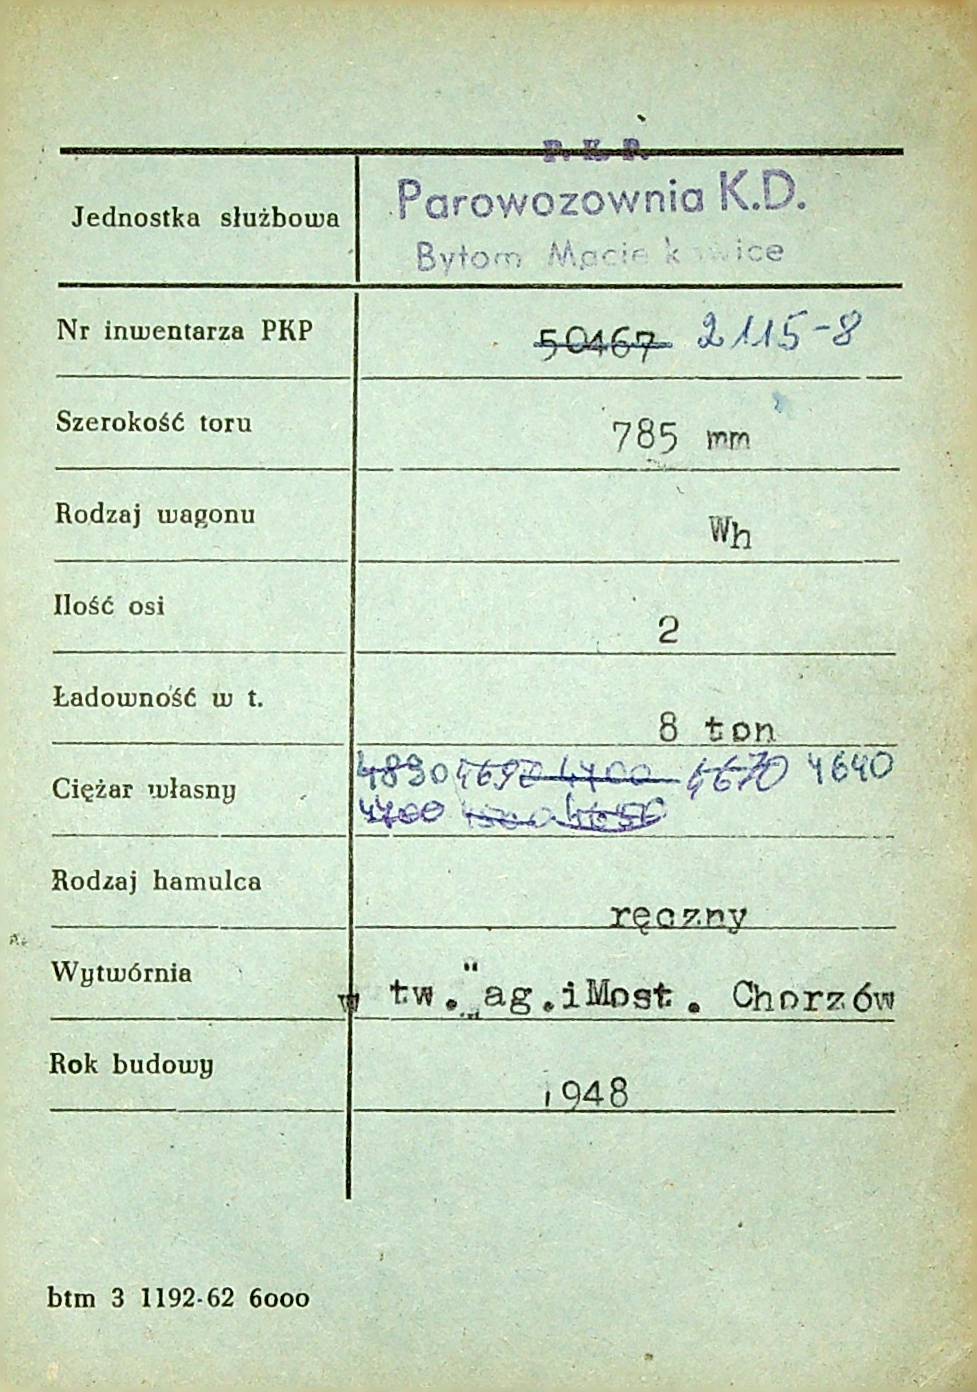 P. K. P.
Jednostka służbowa Parowozownia K.D.
Bytom
Nr inwentarza PKP 50467 2115-8
Szerokość toru 785 mm
Rodzaj wagonu Wh
Ilość osi 2
Ładowność w t. 8 ton
Ciężar własny 4830 4690 4700 4670 4640
4700 4650
Rodzaj hamulca ręczny
Wytwórnia W tw. "ag.iMost. Chorzów
Rok budowy 1948
btm 3 1192-62 6000